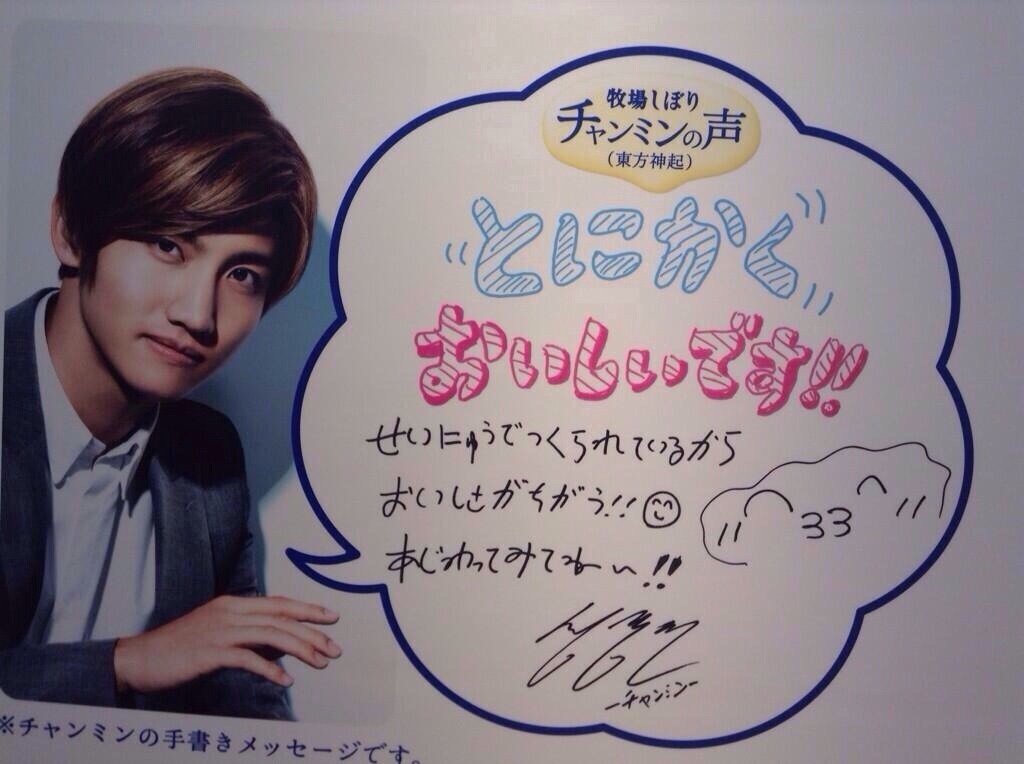 牧場しぼり
チャンミンの声
(東方神起)
とにかく
おいしいです!!
せいにゅうでつくられているから
おいしさがちがう!!
あじわってみてねー〜!!
ーチャンミンー
※チャンミンの手書きメッセージです。